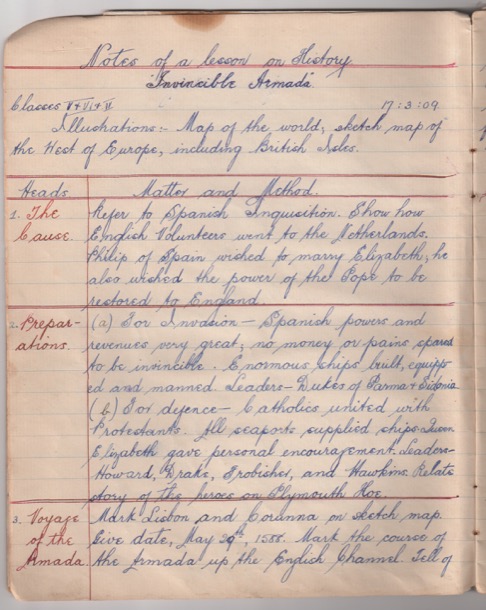 Notes of a lesson on History
"Invincible Armada"
Classes V + VI + VI
17:3:09
Illustrations:- Map of the world; sketch map of
the West of Europe, including British Isles.
Heads. Matter and Method.
1. The Refer to Spanish Inquisition. Show how
Cause. English Volunteers went to the Netherlands.
Philip of Spain wished to marry Elizabeth; he
also wished the power of the Pope to be
restored to England.
2. Prepar- (a) For Invasion - Spanish powers and
ations. revenues very great; no money or pains spared
to be invincible. Enormous ships built, equipp-
ed and manned. Leaders - Dukes of Parma + Sidonia
(b) For defence - Catholics united with
Protestants. All seaports supplied ships. Queen
Elizabeth gave personal encouragement. Leaders -
Howard, Drake, Frobisher, and Hawkins. Relate
story of the heroes on Plymouth Hoe.
3. Voyage Mark Lisbon and Corunna on sketch map.
of the Give date, May 29th, 1588. Mark the course of
Armada. the Armada up the English Channel. Tell of